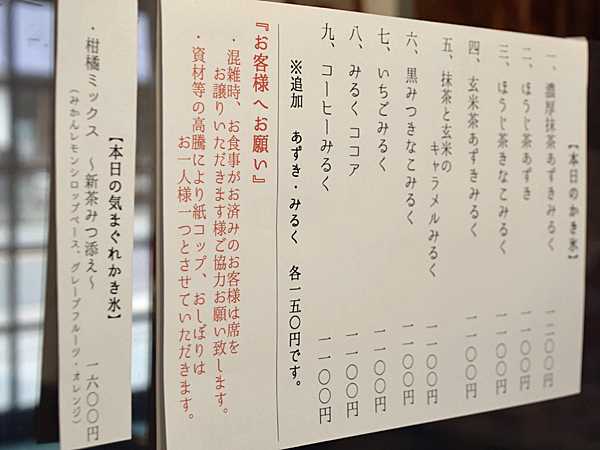 【本日のかき氷】
一、濃厚抹茶あずきみるく 一二〇〇円
二、ほうじ茶あずき 一一〇〇円
三、ほうじ茶きなこみるく 一一〇〇円
四、玄米茶あずきみるく 一一〇〇円
五、抹茶と玄米の
キャラメルみるく 一一〇〇円
六、黒みつきなこみるく 一一〇〇円
七、いちごみるく 一一〇〇円
八、みるくココア 一一〇〇円
九、コーヒーみるく 一一〇〇円
※追加 あずき・みるく 各一五〇円です。
『お客様へお願い』
・混雑時、お食事がお済みのお客様は席を
お譲りいただきます様ご協力お願い致します。
・資材等の高騰により紙コップ、おしぼりは
お一人様一つとさせていただきます。
【本日の気まぐれかき氷】
・柑橘ミックス 〜新茶みつ添え〜 一六〇〇円
(みかんレモンシロップベース、グレープフルーツ・オレンジ)